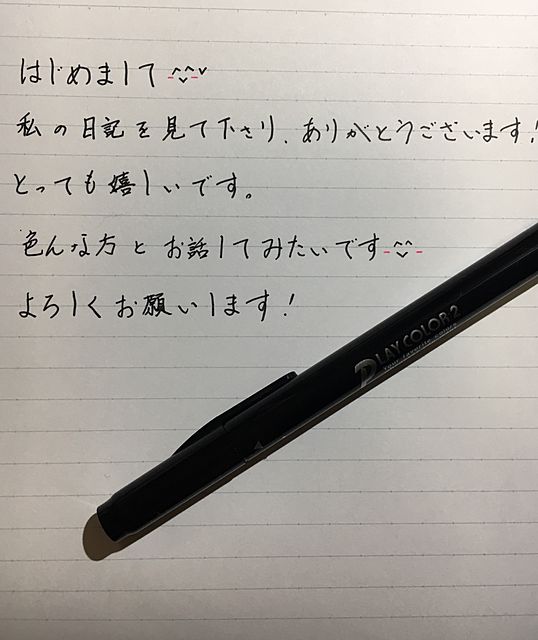 はじめまして
私の日記を見て下さり、ありがとうございます!
とっても嬉しいです。
色んな方とお話してみたいです
よろしくお願いします!
PLAY COLOR 2
Your favorite colors